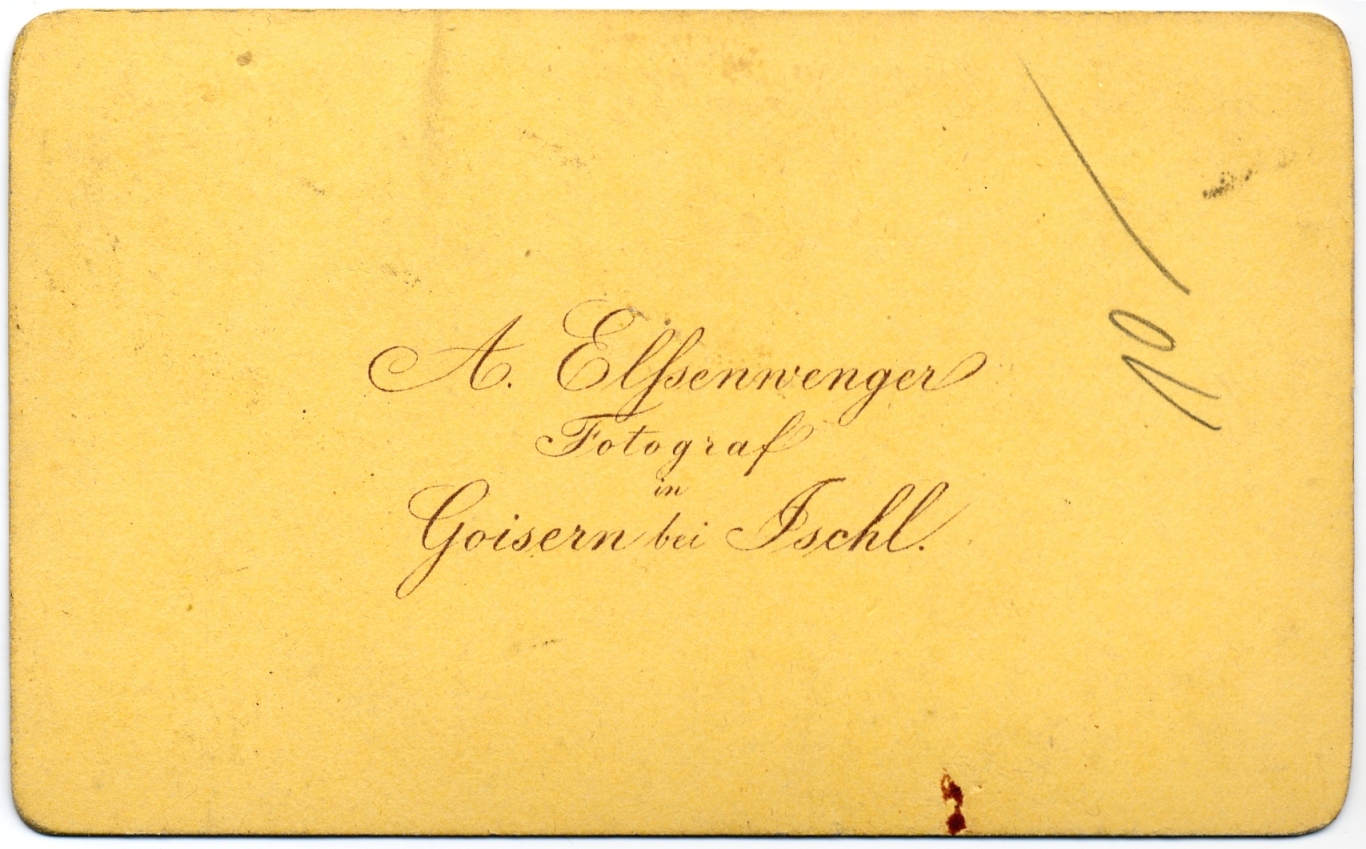 A. Elſsenwenger
Fotograf
in
Goisern bei Ischl.
10